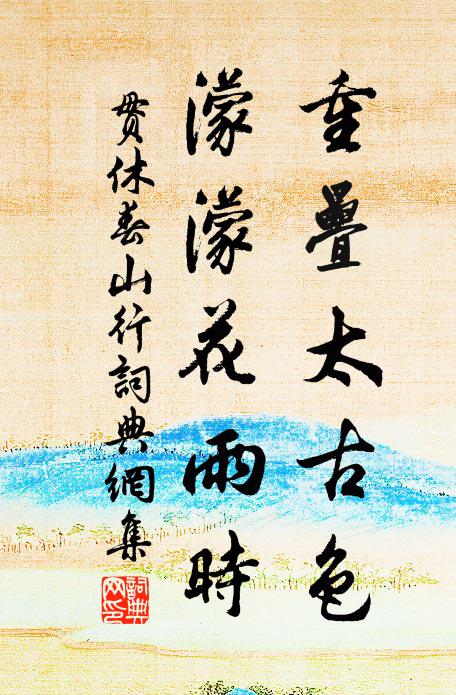 重疊太古色
濛濛花雨時
貫休春山行詞典網集